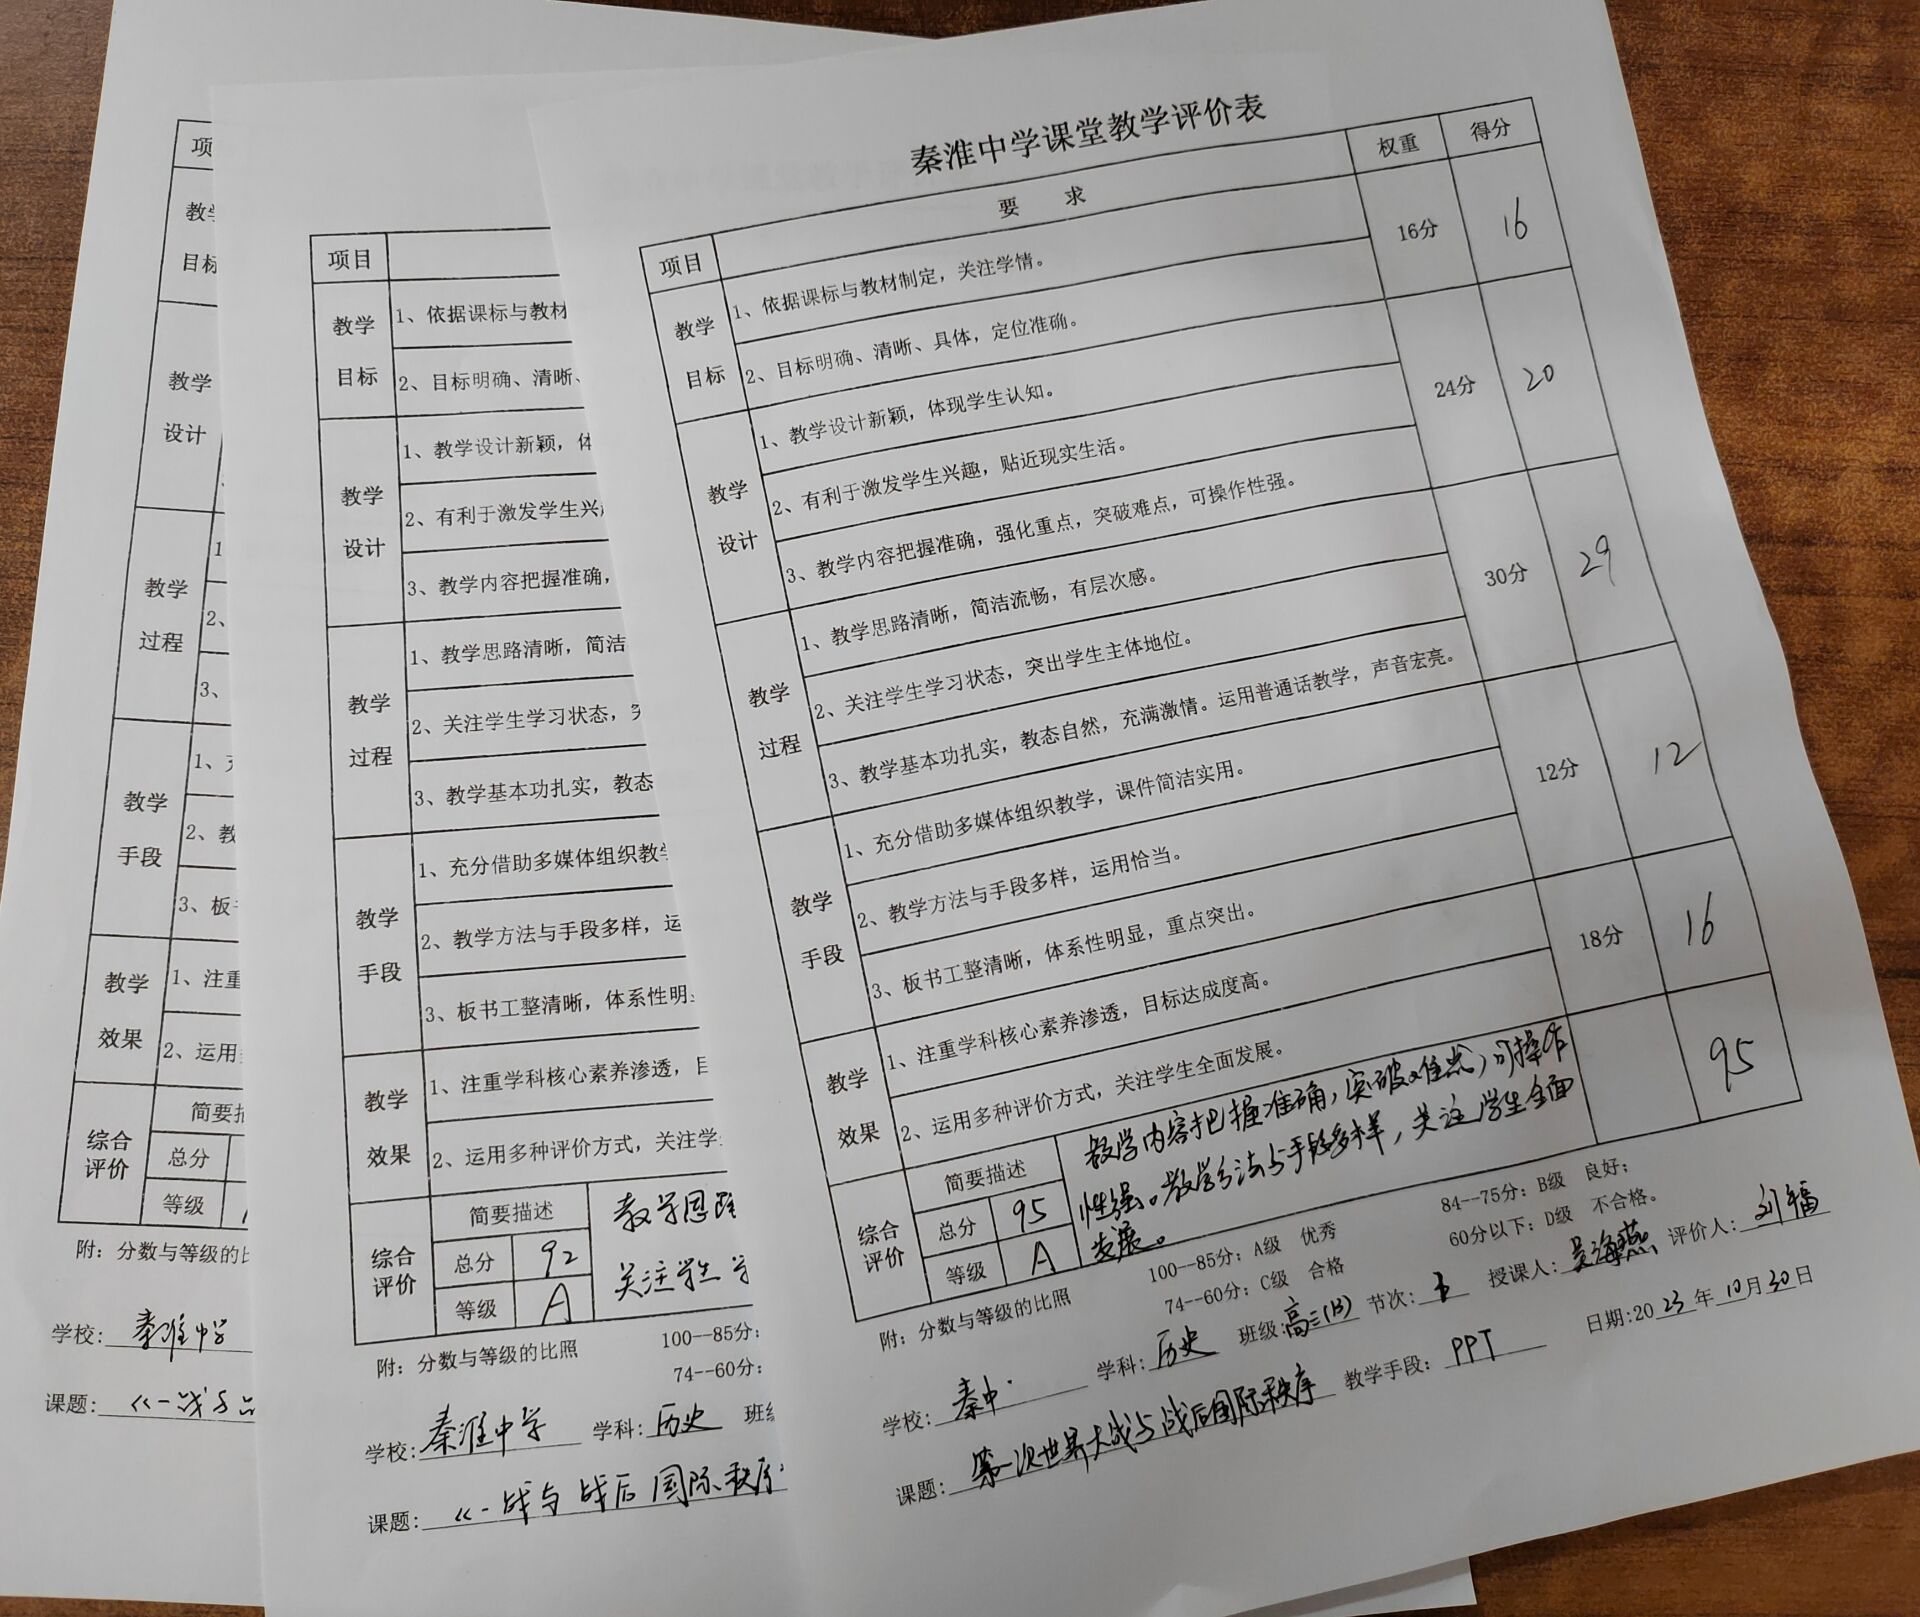 秦淮中学课堂教学评价表
项目 要 求 权重 得分
教学目标 16分 16
1、依据课标与教材制定，关注学情。
2、目标明确、清晰、具体，定位准确。
教学设计 24分 20
1、教学设计新颖，体现学生认知。
2、有利于激发学生兴趣，贴近现实生活。
3、教学内容把握准确，强化重点，突破难点，可操作性强。
教学过程 30分 29
1、教学思路清晰，简洁流畅，有层次感。
2、关注学生学习状态，突出学生主体地位。
3、教学基本功扎实，教态自然，充满激情。运用普通话教学，声音宏亮。
教学手段 12分 12
1、充分借助多媒体组织教学，课件简洁实用。
2、教学方法与手段多样，运用恰当。
3、板书工整清晰，体系性明显，重点突出。
教学效果 18分 16
1、注重学科核心素养渗透，目标达成度高。
2、运用多种评价方式，关注学生全面发展。
综合评价 95
简要描述
总分 95
等级 A
教学内容把握准确，突破难点，可操作
性强。教学方法与手段多样，关注学生全面
发展。
附：分数与等级的比照 100--85分：A级 优秀 84--75分：B级 良好；
74--60分：C级 合格 60分以下：D级 不合格。
学校：秦中 学科：历史 班级：高三(13) 节次： 授课人：吴海燕 评价人：刘福
课题：第一次世界大战与战后国际秩序 教学手段：PPT 日期：2023年10月30日
项目
教学目标
1、依据课标与教材
2、目标明确、清晰、
教学设计
1、教学设计新颖，体
2、有利于激发学生兴
3、教学内容把握准确，
教学过程
1、教学思路清晰，简洁
2、关注学生学习状态，突
3、教学基本功扎实，教态
教学手段
1、充分借助多媒体组织教学
2、教学方法与手段多样，运
3、板书工整清晰，体系性明
教学效果
1、注重学科核心素养渗透，目
2、运用多种评价方式，关注学
综合评价
简要描述 教学思路
总分 92
等级 A 关注学生学
附：分数与等级的比照 100--85分：
74--60分：
学校：秦淮中学 学科：历史 班级
课题：《一战与战后国际秩序
项
教学
目标
教学设计
教学过程
1
2、
3、
教学手段
1、充
2、教
3、板书
教学效果
1、注重
2、运用
综合评价
简要描
总分
等级
附：分数与等级的比
学校：秦淮中学
课题：《一战与